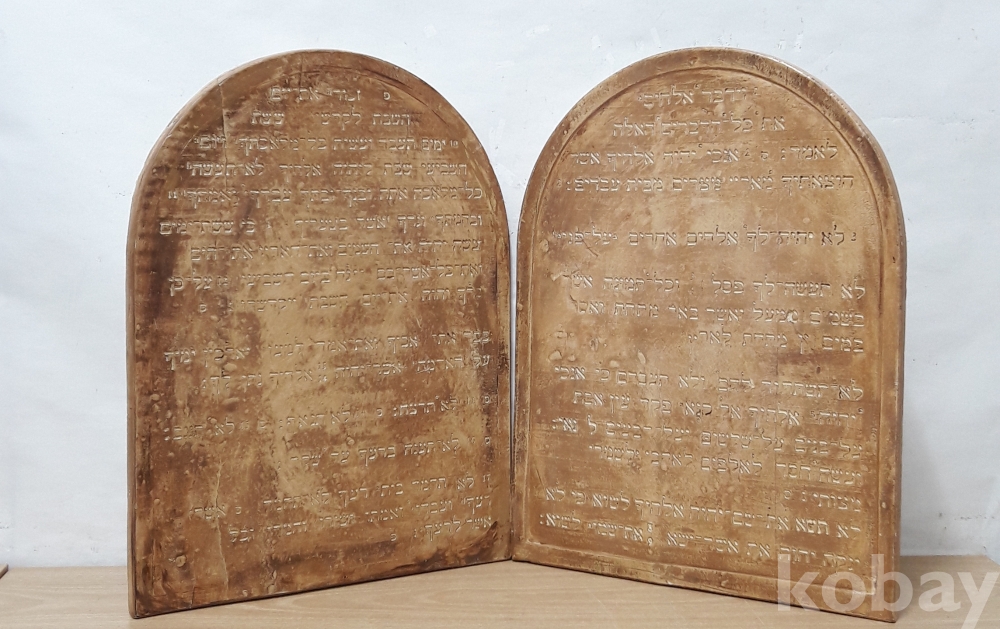 וידבר אלהים
את כל הדברים האלה
לאמר: ס אנכי יהוה אלהיך אשר
הוצאתיך מארץ מצרים מבית עבדים:
לא יהיה לך אלהים אחרים על פני
לא תעשה לך פסל וכל תמונה אשר
בשמים ממעל ואשר בארץ מתחת ואשר
במים מתחת לארץ
לא תשתחוה להם ולא תעבדם כי אנכי
יהוה אלהיך אל קנא פקד עון אבת
על בנים על שלשים ועל רבעים
ועשה חסד לאלפים לאהבי ולשמרי
מצותי
לא תשא את שם יהוה אלהיך לשוא כי לא
יהוה את אשר ישא את שמו לשוא:
זכור את יום
השבת לקדשו ששת
ימים תעבד ועשית כל מלאכתך ויום
השביעי שבת ליהוה אלהיך לא תעשה
כל מלאכה אתה ובנך ובתך עבדך ואמתך
ובהמתך וגרך אשר בשעריך כי ששת ימים
עשה יהוה את השמים ואת הארץ את הים
ואת כל אשר בם וינח ביום השביעי על כן
ברך יהוה את יום השבת ויקדשהו
כבד את אביך ואת אמך למען יארכון ימיך
על האדמה אשר יהוה אלהיך נתן לך:
לא תרצח: ס לא תנאף: ס לא תגנב:
לא תענה ברעך עד שקר
לא תחמד בית רעך לא תחמד אשת
רעך ועבדו ואמתו ושורו וחמרו וכל
אשר לרעך: ס
kobay